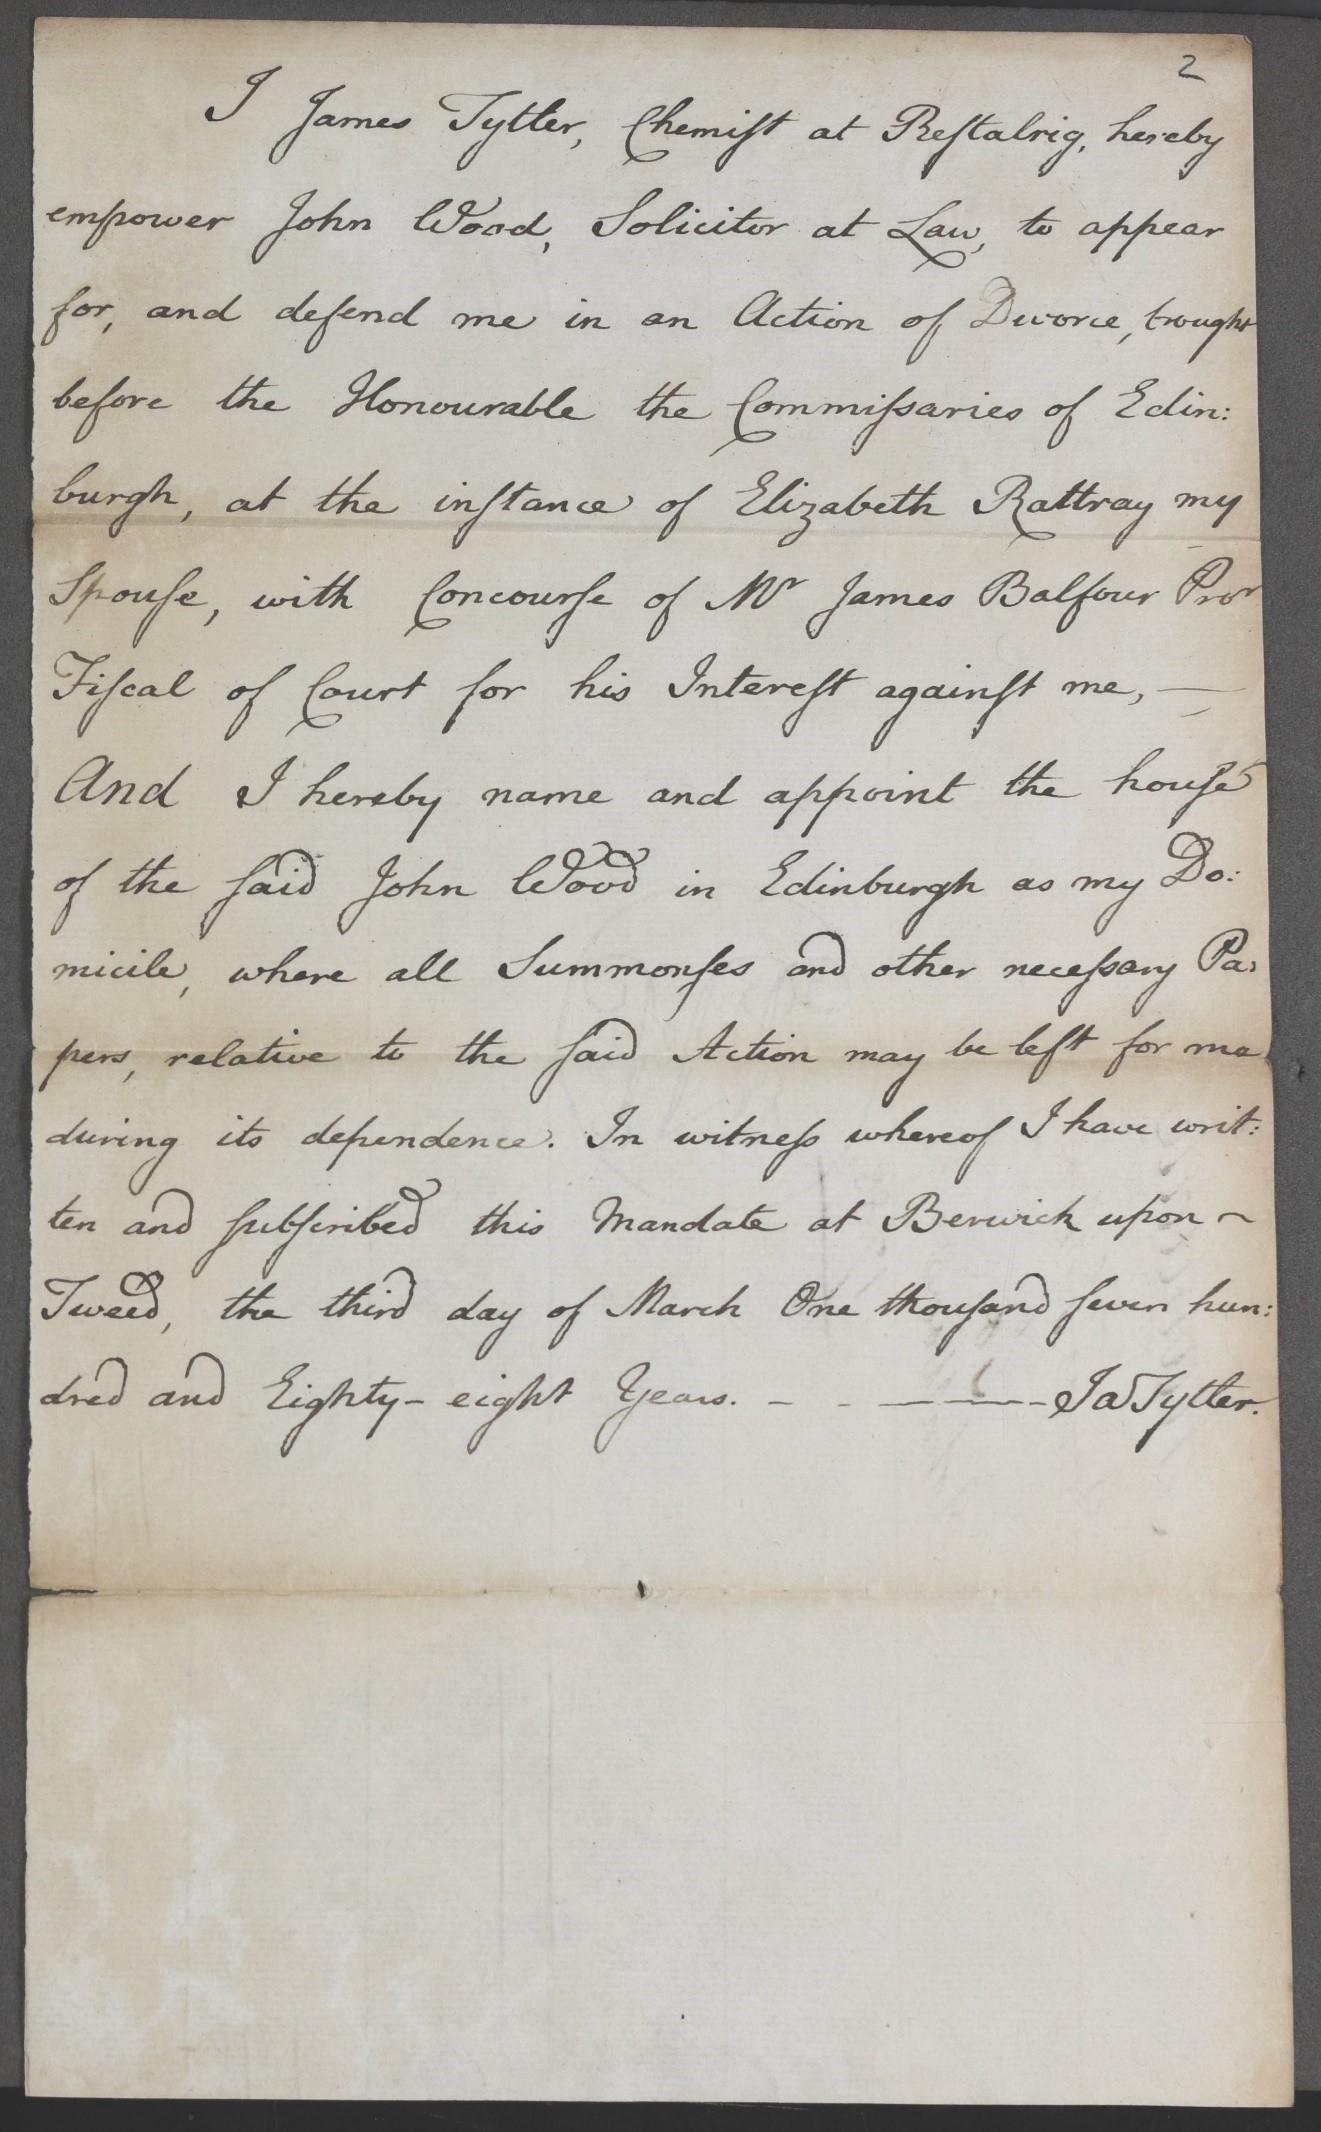 2
I James Tytler, Chemiſt at Reſtalrig, hereby
empower John Wood, Solicitor at Law, to appear
for, and defend me in an Action of Divorce, brought
before the Honourable the Commiſsaries of Edin:
burgh, at the inſtance of Elizabeth Rattray my
Spouſe, with Concourſe of Mr James Balfour Pror
Fiſcal of Court for his Intereſt againſt me, —
And I hereby name and appoint the houſe
of the ſaid John Wood in Edinburgh as my Do:
micile, where all Summonſes and other neceſsary Pa:
pers, relative to the ſaid Action may be left for me
during its dependence. In witneſs whereof I have writ:
ten and ſubſcribed this Mandate at Berwick upon ~
Tweed, the third day of March One thouſand ſeven hun:
dred and Eighty-eight Years. - - — — - Ja Tytler.